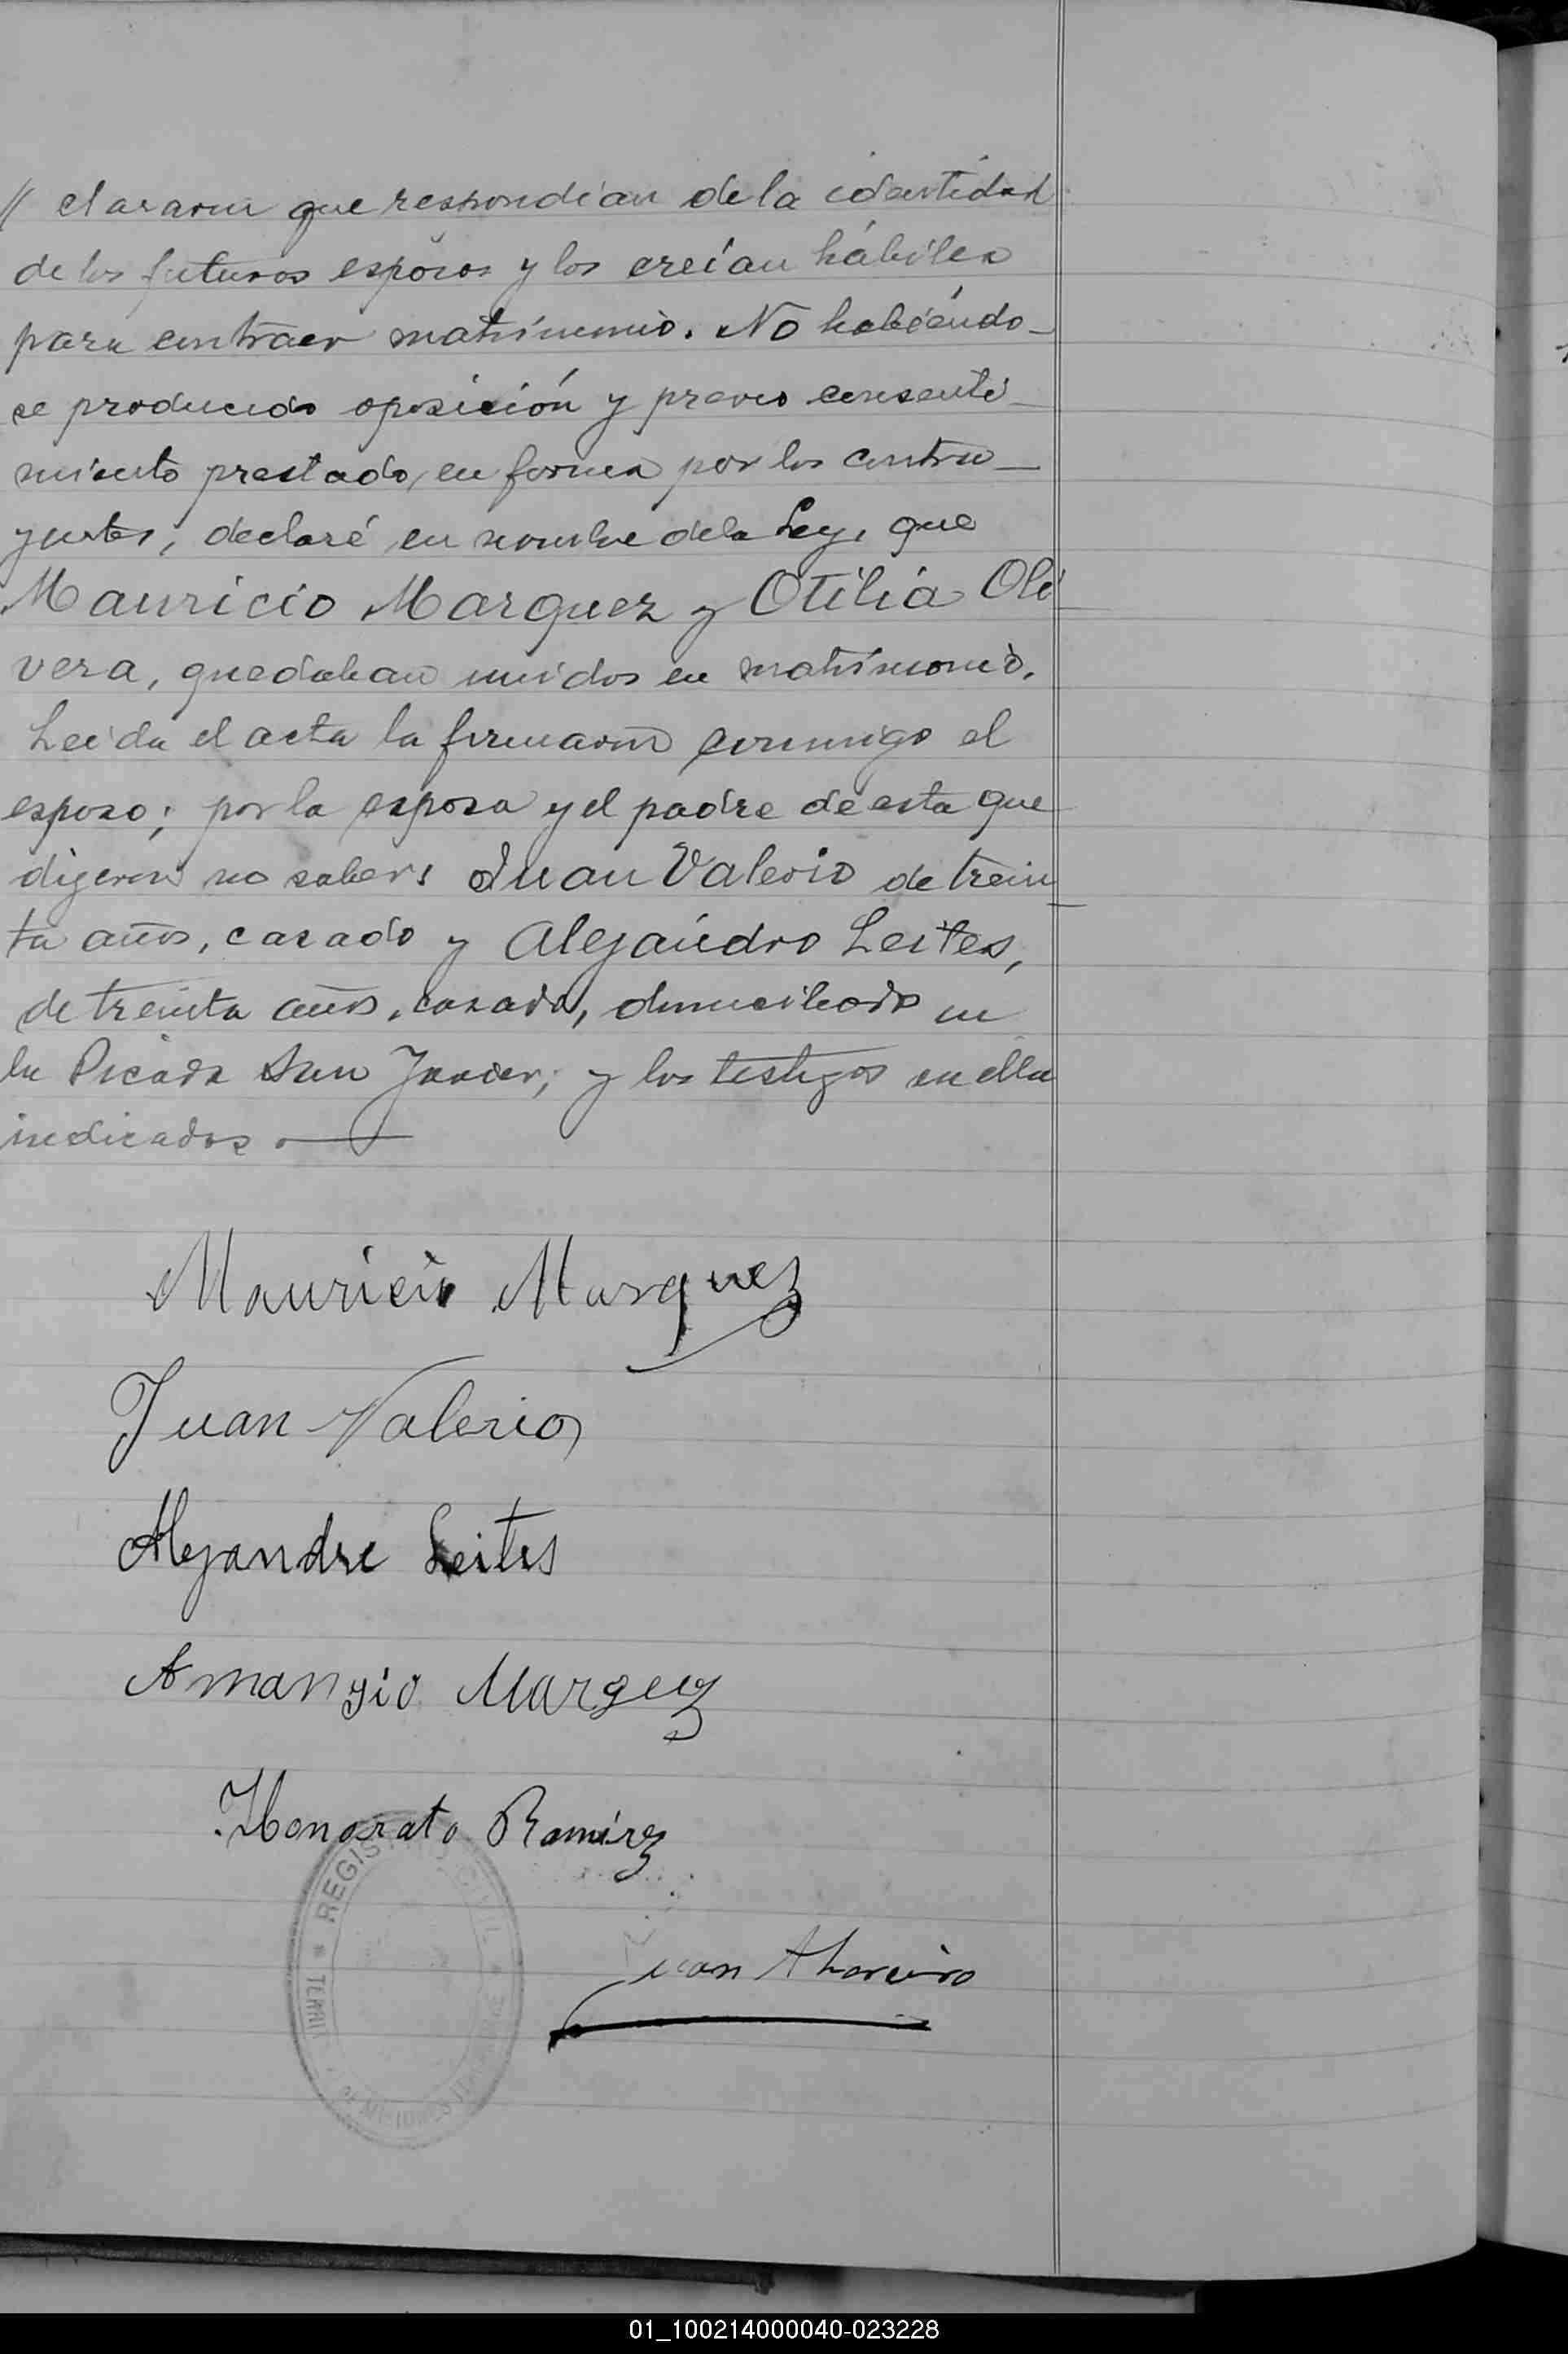 // clararon que respondían de la identidad
de los futuros esposos y los creían hábiles
para contraer matrimonio. No habiéndo-
se producido oposición y previo consenti-
miento prestado en forma por los contra-
yentes, declaré en nombre de la Ley, que
Mauricio Marquez y Otilia Oli
vera, quedaban unidos en matrimonio.
Leida el acta la firmaron conmigo el
esposo; por la esposa y el padre de esta que
digeron no saber: Juan Valerio de trein
ta años, casado y Alejándro Leites,
de treinta años, casado, domiciliado en
la Picada San Javier; y los testigos en ella
indicados.
Mauricio Marquez
Juan Valerio
Alejandre Leites
Amansio Marquez
Honorato Ramirez
Juan
REGISTRO CIVIL
DE MISIONES
01_100214000040-023228